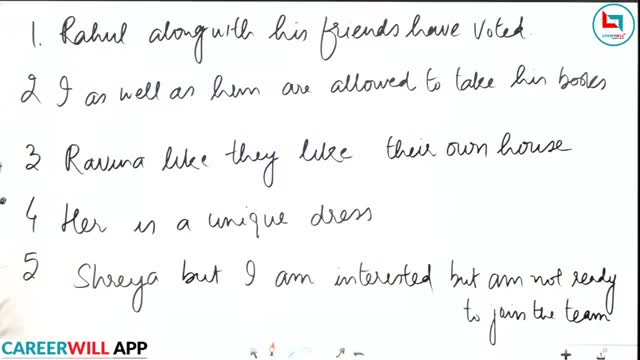 CAREERWILL
1. Rahul along with his friends have voted.
2 I as well as him are allowed to take his books
3 Ravina like they like their own house
4 Her is a unique dress
5 Shreya but I am interested but am not ready
to join the team
CAREERWILL APP